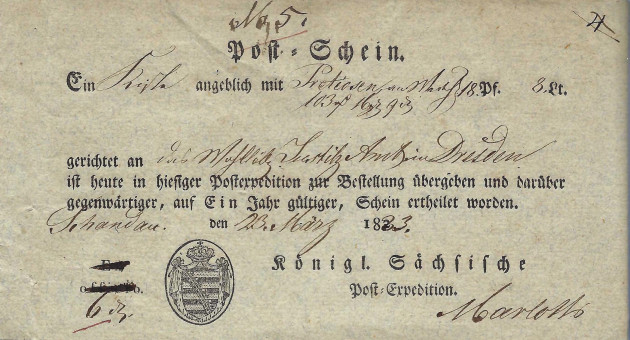 No. 5.
Post-Schein.
Ein Kiste angeblich mit Pretiosen 18 Pf. 8 Lt.
gerichtet an das Justitz Amt in Dresden
ist heute in hiesiger Postexpedition zur Bestellung übergeben und darüber
gegenwärtiger, auf Ein Jahr gültiger, Schein ertheilet worden.
Schandau. den 23. März 1833.
Königl. Sächsische
Post-Expedition.